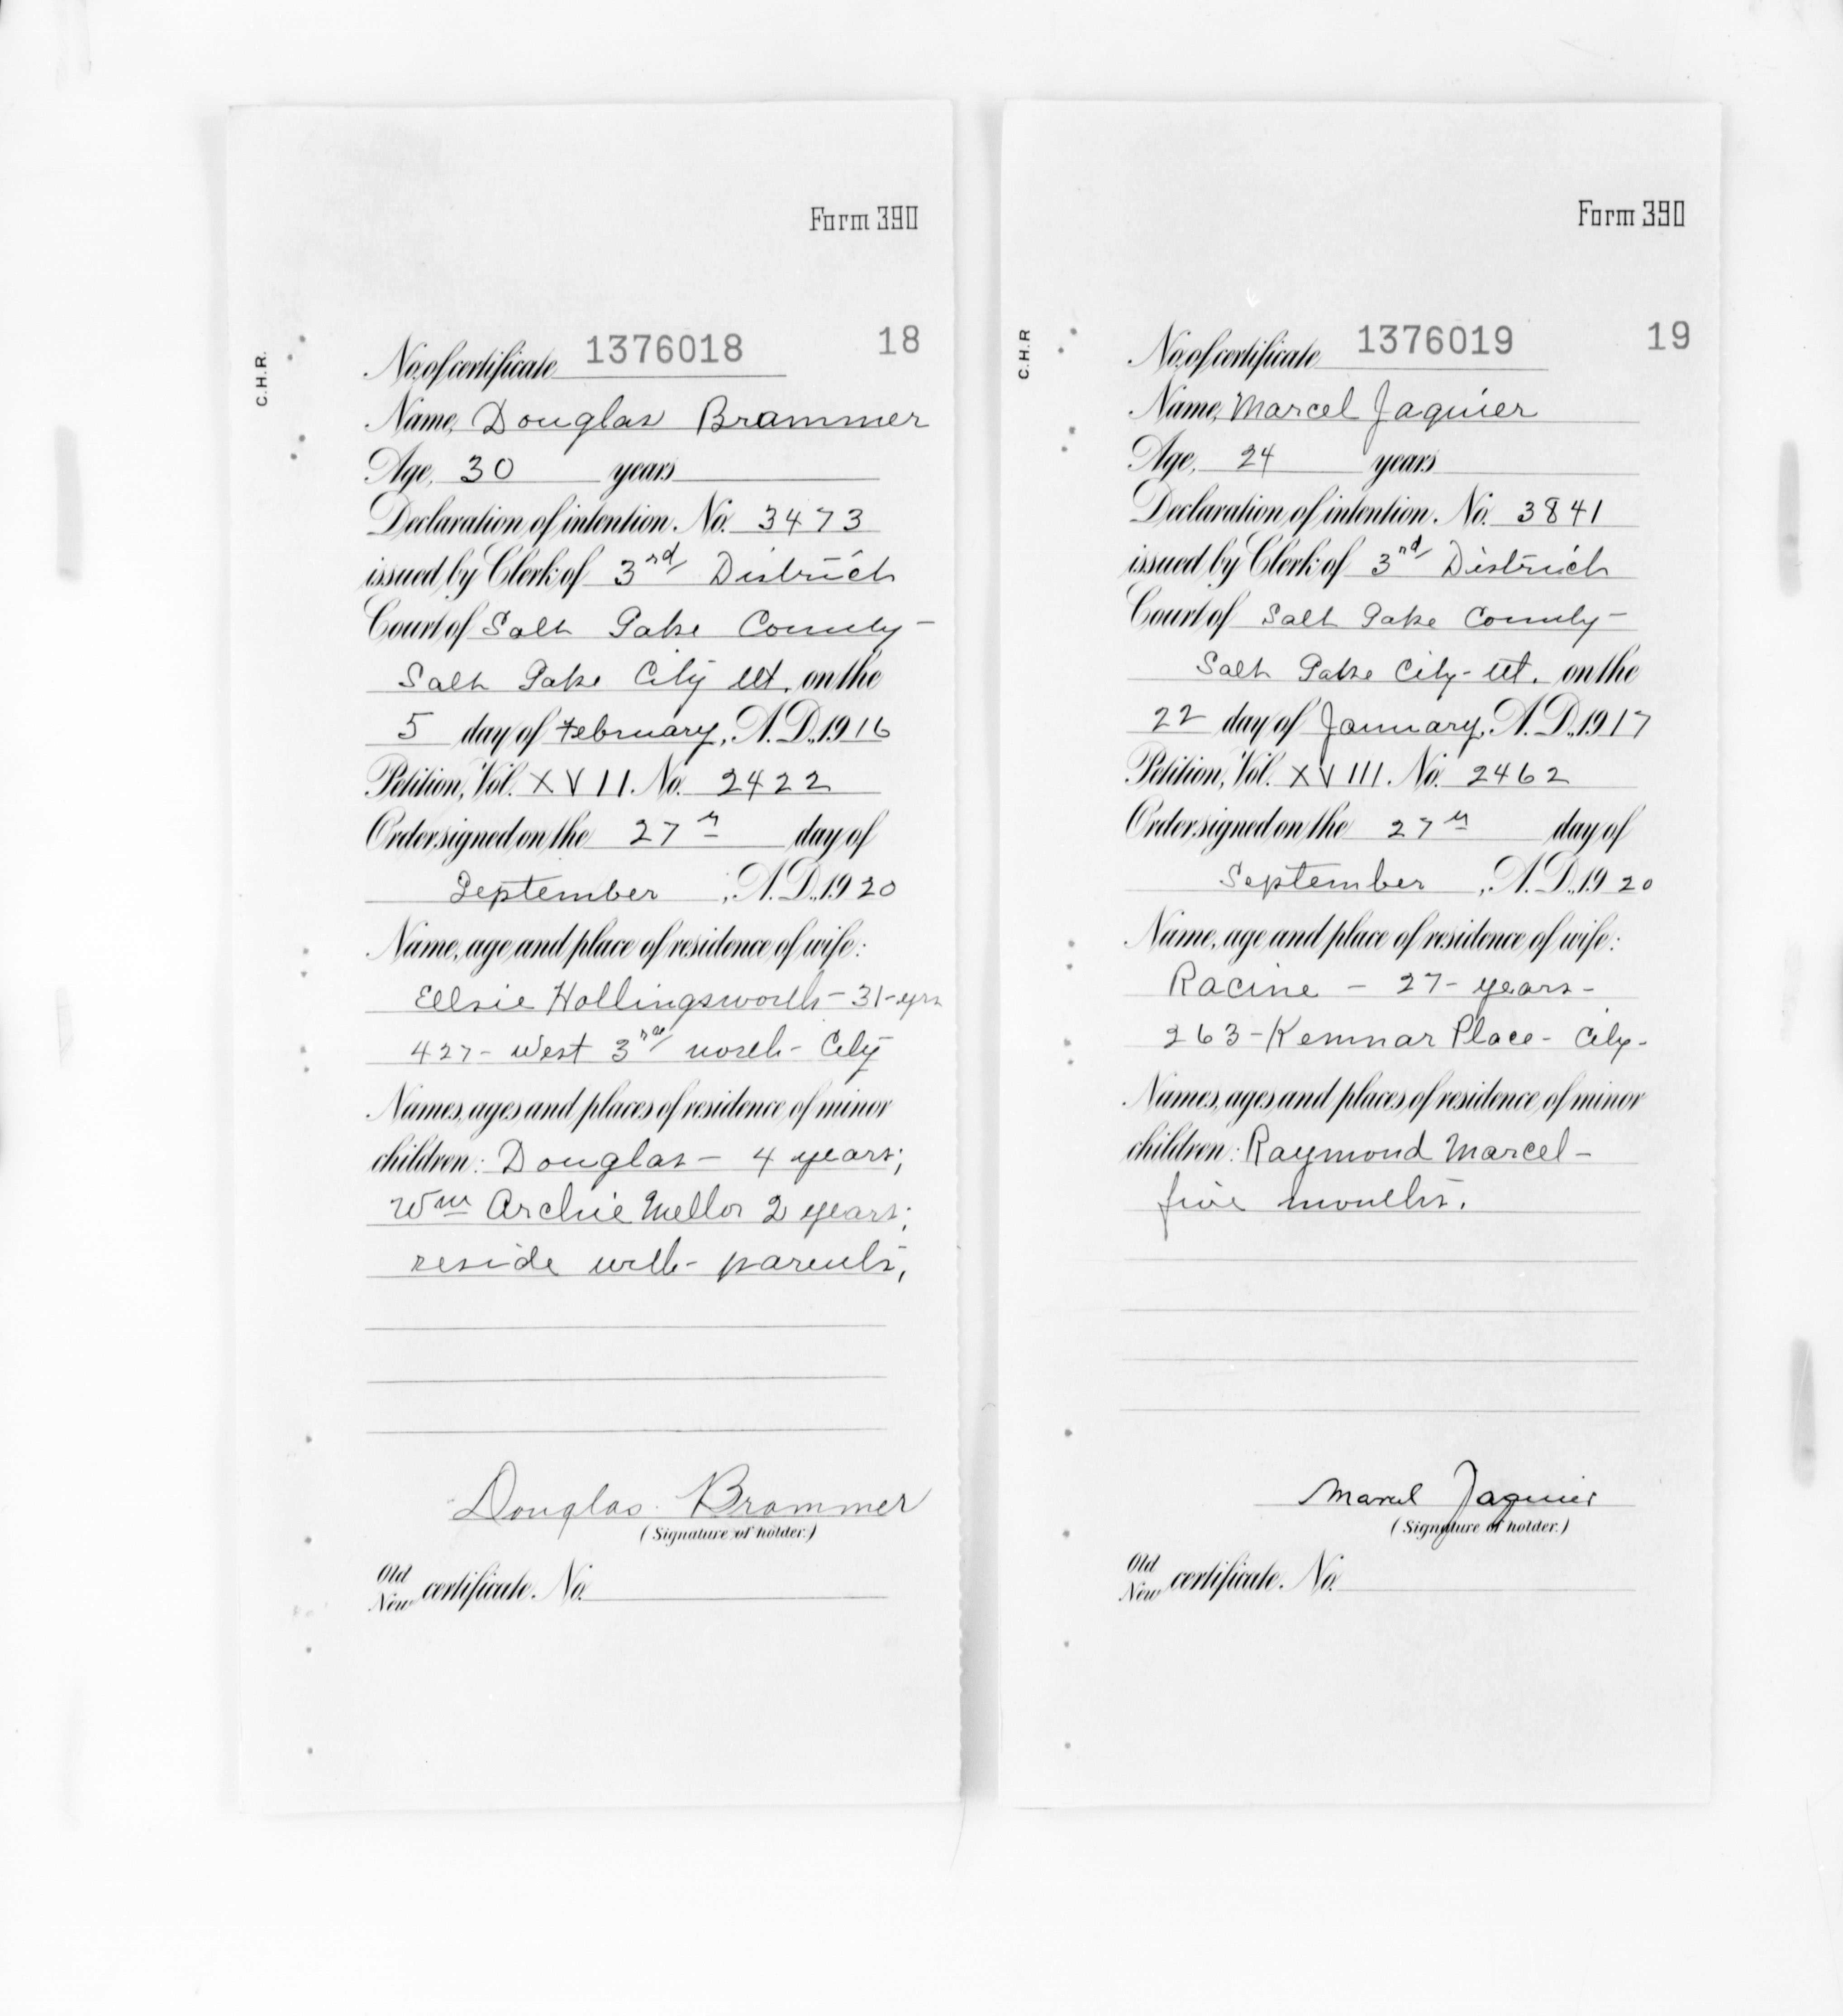 Form 390
C.H.R.
No. of certificate 1376018 18
Name, Douglas Brammer
Age, 30 years
Declaration of intention. No. 3473
issued by Clerk of 3rd District
Court of Salt Lake County-
Salt Lake City Ut. on the
5 day of February, A.D., 1916
Petition, Vol. XVII. No. 2422
Order signed on the 27th day of
September, A.D., 1920
Name, age and place of residence of wife:
Ellsie Hollingsworth - 31-yrs
427- West 3rd north- City
Names, ages and places of residence of minor
children: Douglas - 4 years;
Wm Archie Mellor 2 years;
reside with- parents,
Douglas Brammer
(Signature of holder.)
Old
New certificate. No.
Form 390
C.H.R
No. of certificate 1376019 19
Name, Marcel Jaquier
Age, 24 years
Declaration of intention. No. 3841
issued by Clerk of 3rd District
Court of Salt Lake County-
Salt Lake City- Ut. on the
22 day of January, A.D., 1917
Petition, Vol. XVIII. No. 2462
Order signed on the 27th day of
September, A.D., 1920
Name, age and place of residence of wife:
Racine - 27- years-
263- Place- City-
Names, ages and places of residence of minor
children: Raymond Marcel-
five months.
Marcel Jaquier
(Signature of holder.)
Old
New certificate. No.